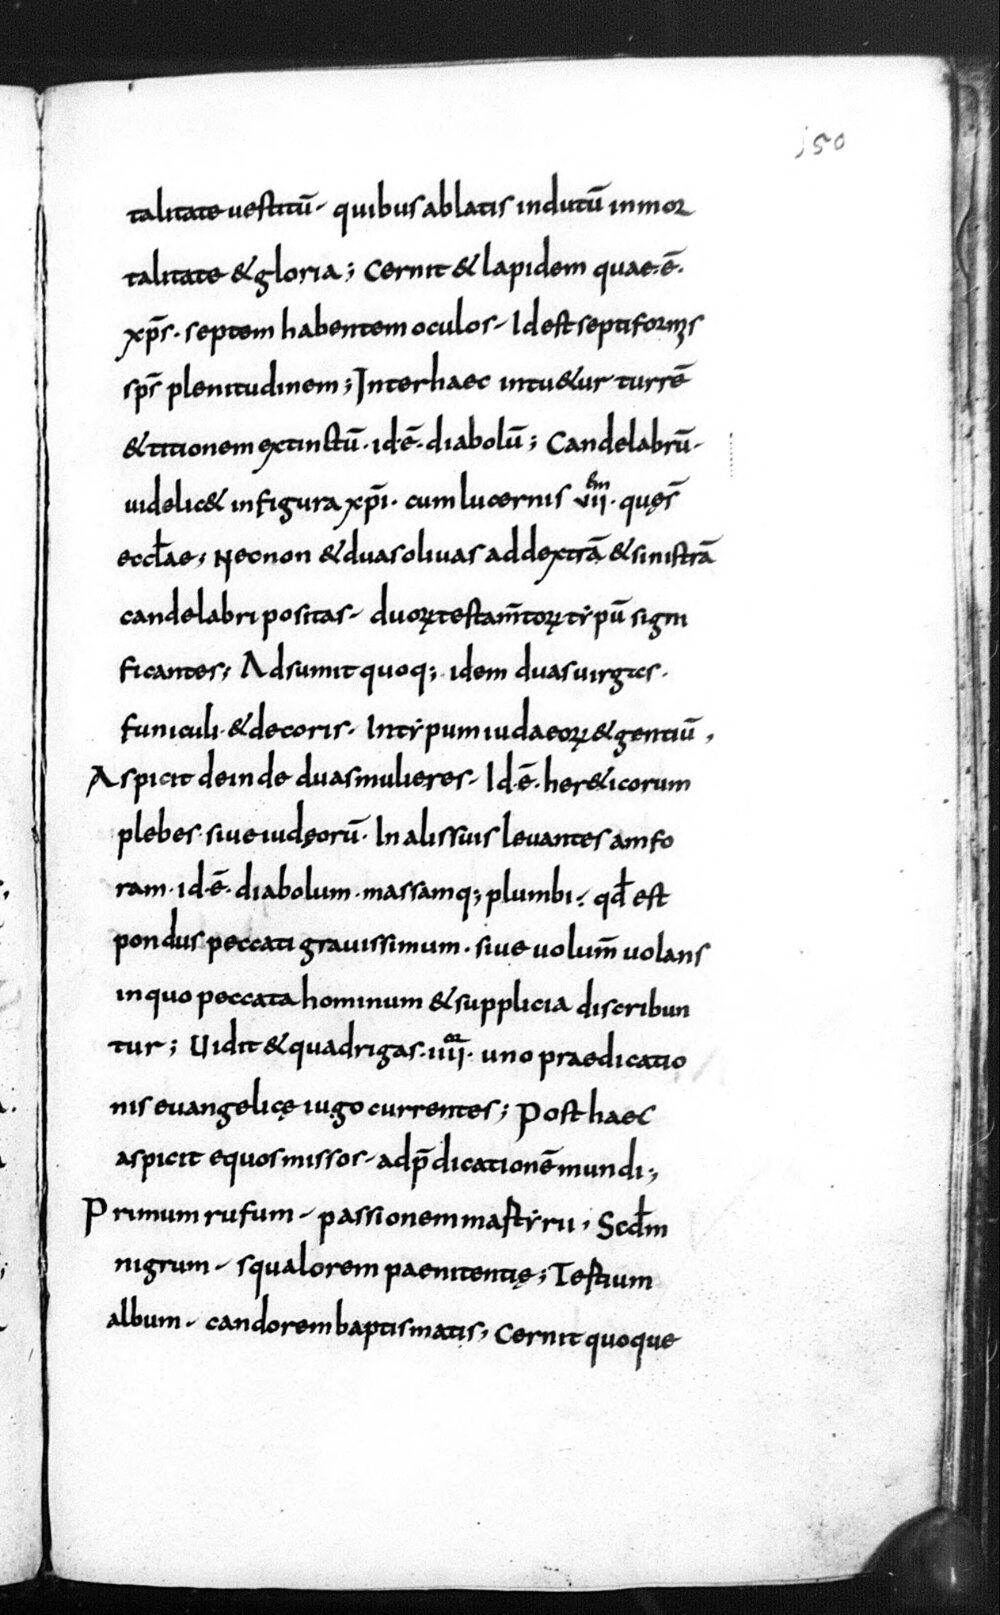 150
talitate uestitū· quibus ablatis indutū inmor
talitate & gloria; Cernit & lapidem quae·ē·
xp̄s· septem habentem oculos· Idest septiformis
sp̄s plenitudinem; Inter haec intu&ur turrē
& titionem extinctū· id·ē· diabolū; Candelabrū·
uidelic& in figura xp̄i· cum lucernis vii· quęs̄
eccl̄ae; Necnon & duas oliuas ad dextrā & sinistrā
candelabri positas· duoꝝ testam̄toꝝ tẏpū signi
ficantes; Adsumit quoq; idem duas uirgas·
funiculi· & decoris· In tẏpum iudaeoꝝ & gentiū,
Aspicit deinde duas mulieres· Id·ē· her&icorum
plebes· siue iudęorū· In alis suis leuantes amfo
ram· id·ē· diabolum· massamq; plumbi· qd̄ est
pondus peccati grauissimum· siue uolum̄ uolans
in quo peccata hominum & supplicia discribun
tur; Uidit & quadrigas· iiii or· uno praedicatio
nis euangelicę iugo currentes; Post haec
aspicit equos missos· ad p̄dicationē mundi;
Primum rufum· passionem martẏrii, Scd̄m
nigrum· squalorem paenitentię; Tertium
album· candorem baptismatis; Cernit quoque